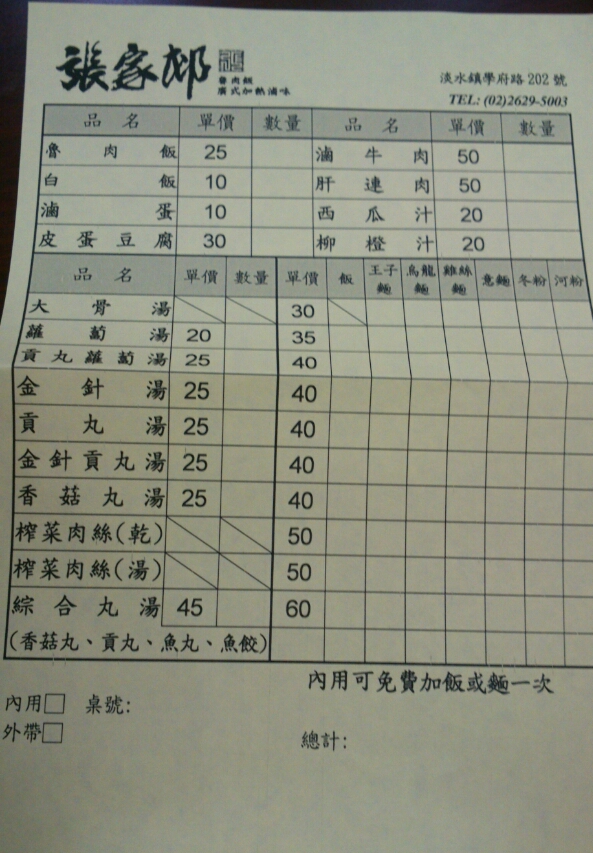 張家邨
魯肉飯
廣式加熱滷味
淡水鎮學府路 202 號
TEL: (02)2629-5003
品 名 單價 數量 品 名 單價 數量
魯肉飯 25 滷牛肉 50
白飯 10 肝連肉 50
滷蛋 10 西瓜汁 20
皮蛋豆腐 30 柳橙汁 20
品 名 單價 數量 單價 飯 王子麵 烏龍麵 雞絲麵 意麵 冬粉 河粉
大骨湯 30
蘿蔔湯 20 35
貢丸蘿蔔湯 25 40
金針湯 25 40
貢丸湯 25 40
金針貢丸湯 25 40
香菇丸湯 25 40
榨菜肉絲(乾) 50
榨菜肉絲(湯) 50
綜合丸湯 45 60
(香菇丸、貢丸、魚丸、魚餃)
內用可免費加飯或麵一次
內用□ 桌號:
外帶□
總計: